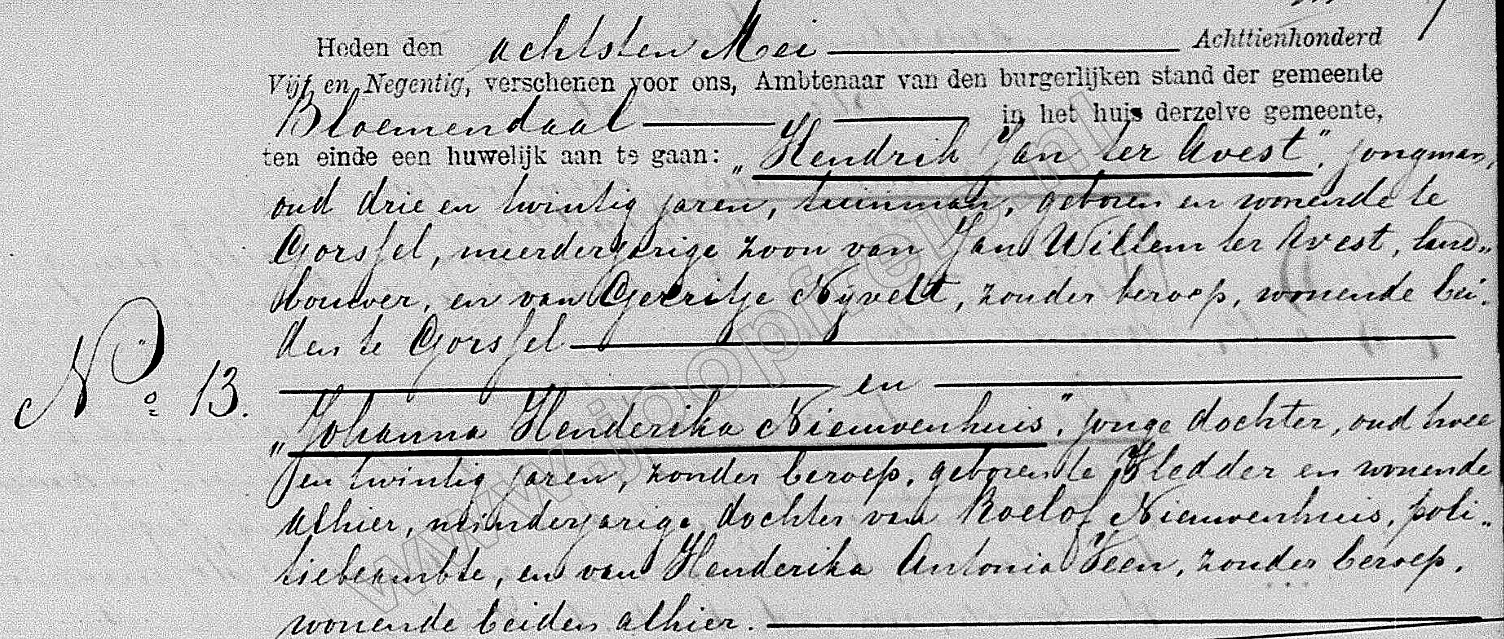 Heden den achtsten Mei Achttienhonderd
Vijf en Negentig, verschenen voor ons, Ambtenaar van den burgerlijken stand der gemeente
Bloemendaal in het huis derzelve gemeente,
ten einde een huwelijk aan te gaan: „Hendrik Jan ter Avest", jongman,
oud drie en twintig jaren, tuinman, geboren en wonende te
Gorssel, meerderjarige zoon van Jan Willem ter Avest, land-
bouwer, en van Gerritje Nijvelt, zonder beroep, wonende bei-
den te Gorssel
en
No 13.
„Johanna Henderika Nieuwenhuis", jonge dochter, oud twee
en twintig jaren, zonder beroep, geboren te Vledder en wonende
alhier, minderjarige dochter van Roelof Nieuwenhuis, poli-
tiebeambte, en van Henderika Antonia Veen, zonder beroep,
wonende beiden alhier.